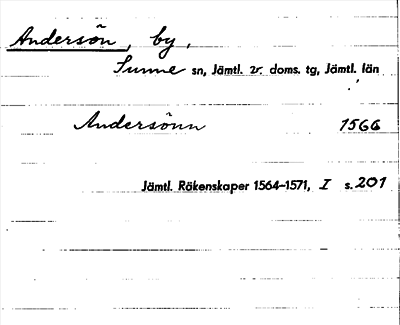 Andersön, by,
Sunne sn, Jämtl. v. doms. tg, Jämtl. län
Andersönn 1566
Jämtl. Räkenskaper 1564–1571, I s. 201